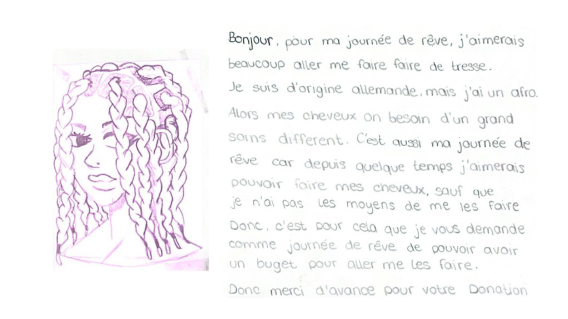 Bonjour, pour ma journée de rêve, j'aimerais
beaucoup aller me faire faire de tresse.
Je suis d'origine allemande, mais j'ai un afro.
Alors mes cheveux on besoin d'un grand
soins différent. C'est aussi ma journée de
rêve car depuis quelque temps j'aimerais
pouvoir faire mes cheveux, sauf que
je n'ai pas les moyens de me les faire
Donc, c'est pour cela que je vous demande
comme journée de rêve de pouvoir avoir
un buget pour aller me les faire.
Donc merci d'avance pour votre Donation